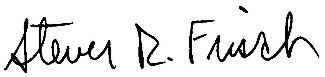 Steven R. Frisch